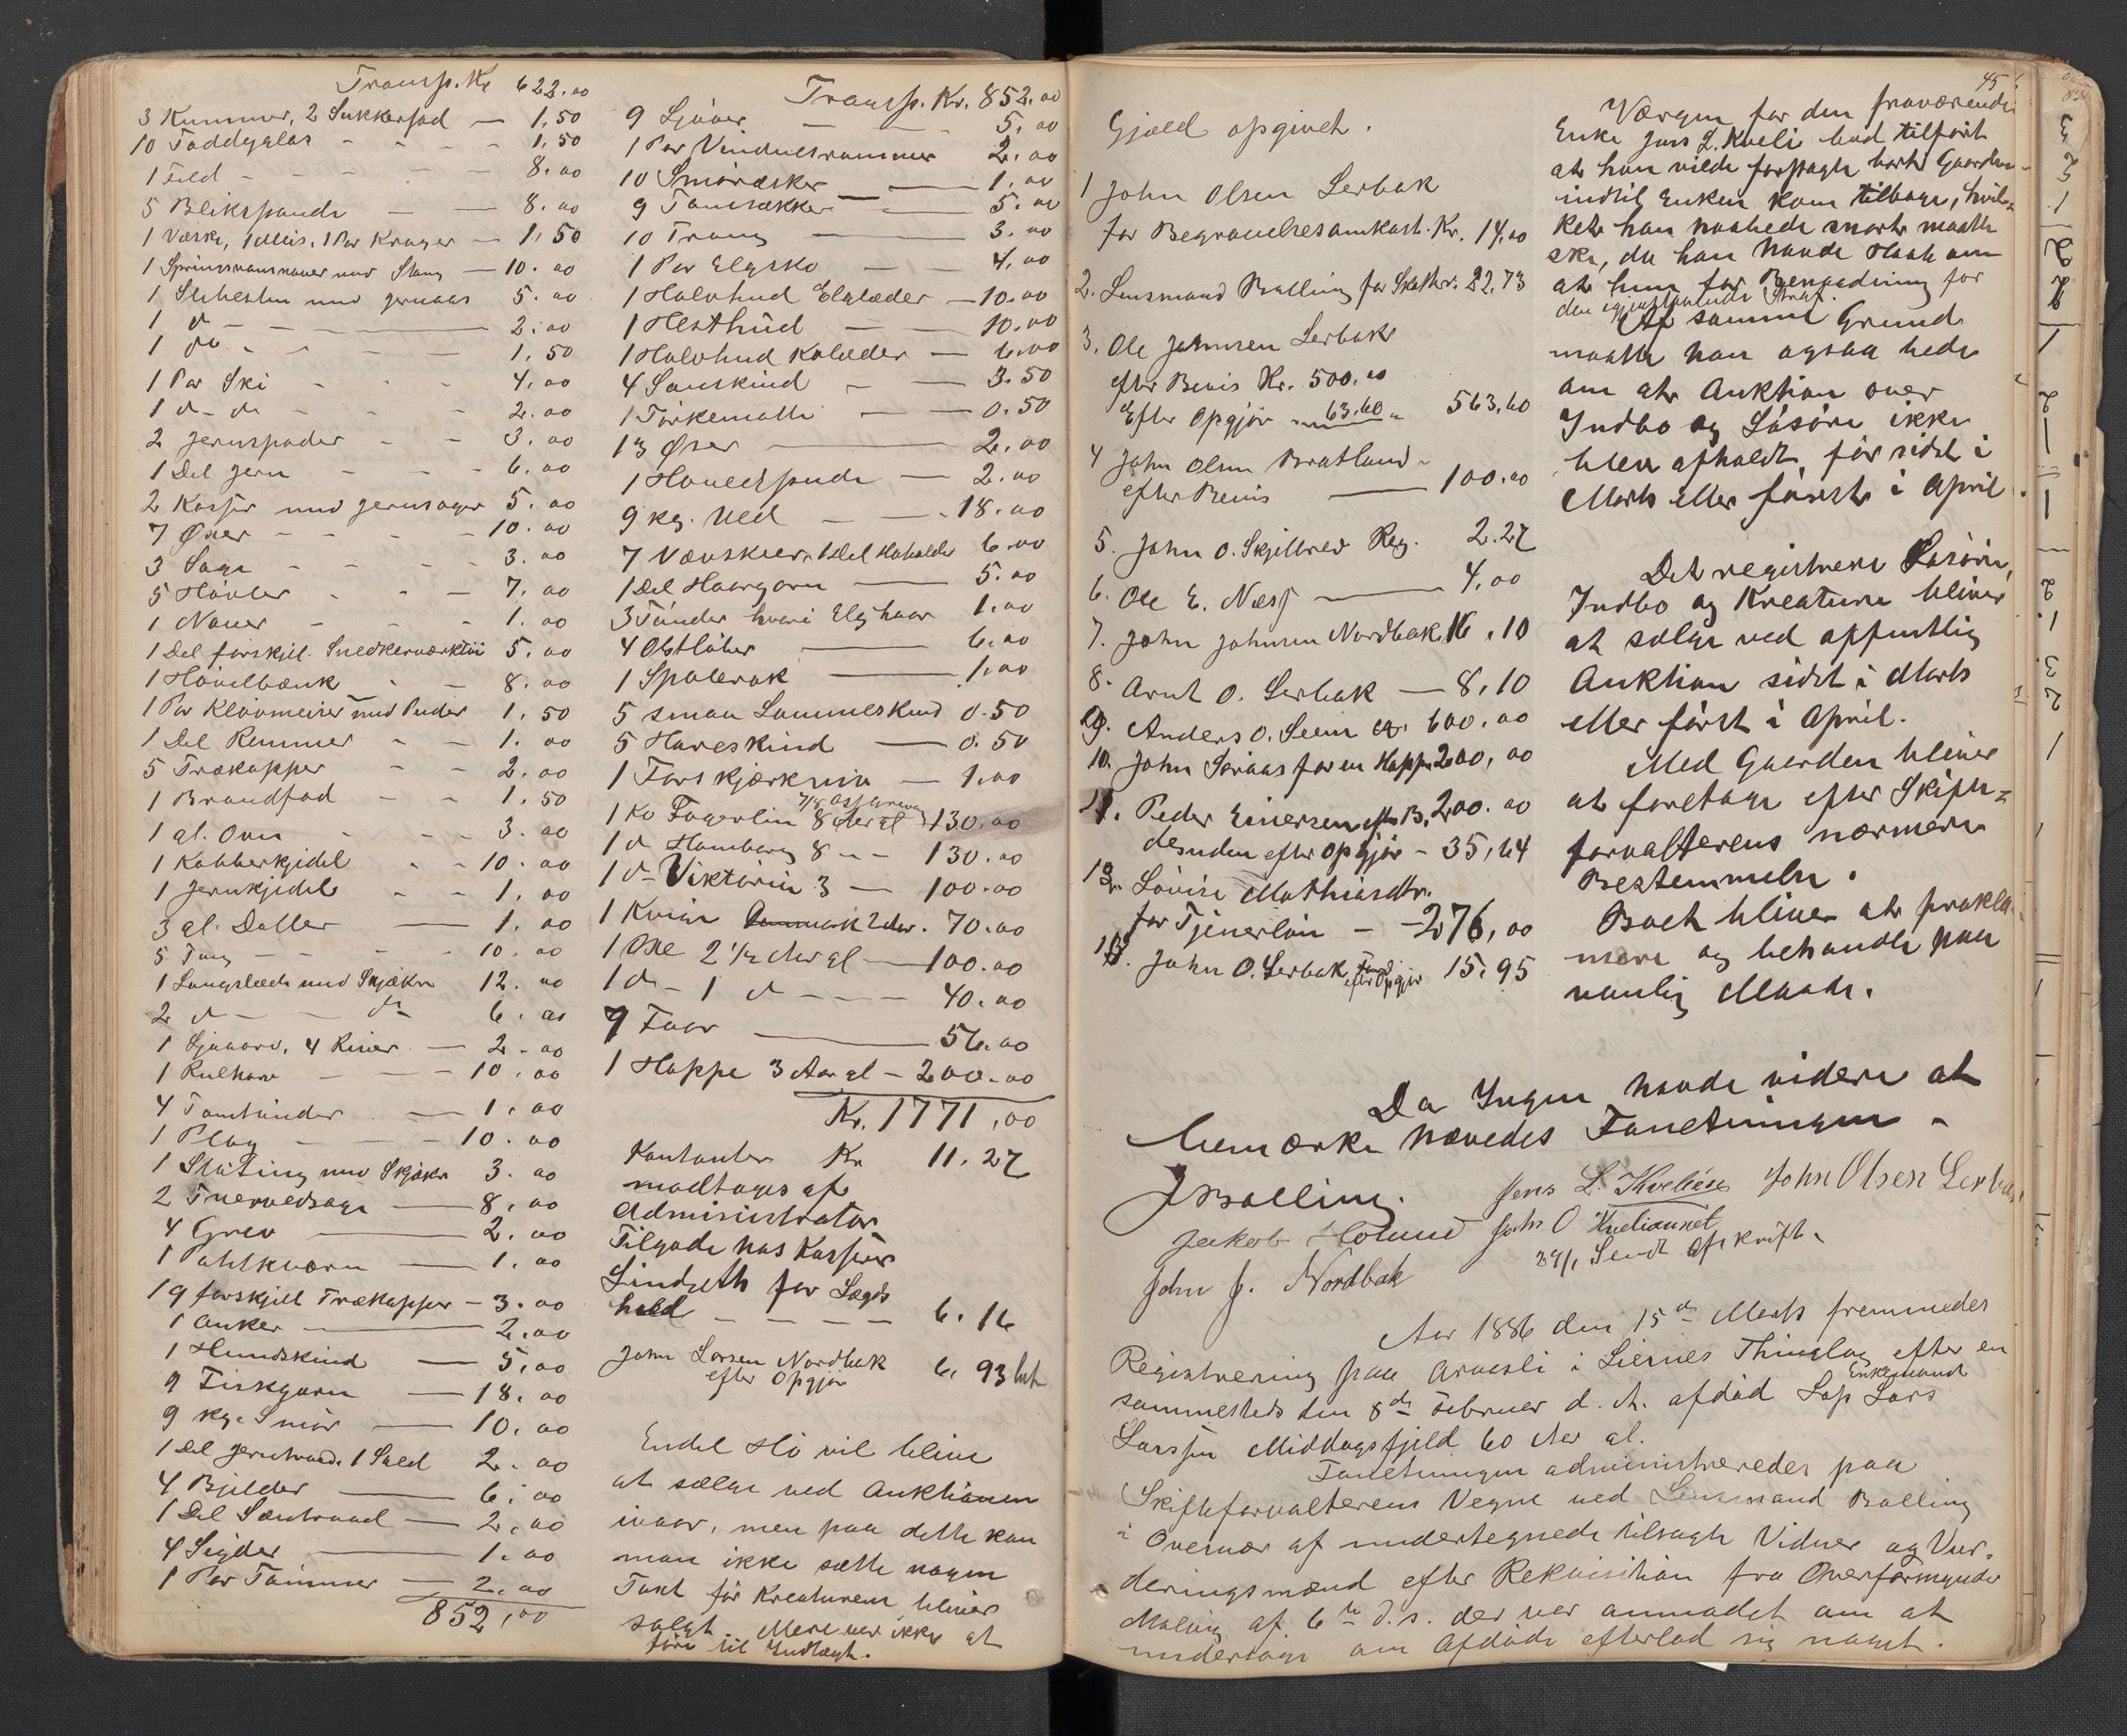 Transp. Kr 622.00
3 Kummer, 2 Sukkerfad — 1,50
10 Toddyglas - - - - 1,50
1 Feld - - - - - 8.00
5 Blikspande — — 8.00
1 Væske, 1 Meis, 1 Par Krager — 1,50
1 med Stang — 10.00
1 5.00
1 d - — 2.00
1 do - - - - 1,50
1 Par Ski - - - 4,00
1 d - do - - - 2.00
2 Jernspader - - 3.00
1 Del Jern - - - 6.00
2 Kasser med Jernsager 5.00
7 Øxer - - - - 10.00
3 Sage - - - - 3.00
5 Høvler - - - 7,00
1 Naver - - - - 1.00
1 Del forskjel. Snedkerværktøi 5.00
1 Høvelbænk - - 8.00
1 Par Kløvmeiser med Puder 1,50
1 Del Remmer - - 1.00
5 Trækopper - - 2.00
1 Brandfad - - 1,50
1 gl. Ovn - - - 3.00
1 Kobberkjedel - - 10.00
1 Jernkjedel - - 1,00
3 gl. Baller — 1,00
5 - - - 10.00
1 Langslæde med Skjæker 12.00
2 d - — do 6.00
1 Ljaaorv, 4 River — 2.00
1 Rulharv — — 10.00
4 Tomtønder — 1.00
1 Plog — — 10.00
1 Slutting med Skjæker 3.00
2 Tvervedsage — 8.00
4 Grev — 2.00
1 — 1.00
19 forskjell Trækopper — 3.00
1 Anker — 2,00
1 Hundskind — 5,00
9 Fiskgarn — 18.00
9 kg. Smør — 10.00
1 Del Jerntraad, 1 Sæld 2.00
4 Bjelder — 6.00
1 Del — 2,00
4 Sigder — 1.00
1 Par Tømmer — 2.00
852,00
Transp. Kr. 852.00
9 Ljaaer — - 5,00
1 Par Vinduesrammer 2.00
10 Smøræsker — 1.00
9 Tomsækker — 5.00
10 Traug — 3.00
1 Par Elgsko — - 4,00
1 Halvhud Elglæder — 10.00
1 Hesthud — - 10.00
1 Halvhud Kolæder — 6,00
4 Saueskind - — 3.50
1 Tørkematte — - 0.50
13 Øser — 2.00
1 Hovedpude — 2.00
9 kg. Uld — - 18.00
7 Vævskeer, 1 Del Hovolder 6.00
1 Del Haargarn — 5.00
3 Tønder hvori Elghaar 1.00
4 Ostløber — 6.00
1 Spolerok — 1.00
5 smaa Lammeskind 0.50
5 Hareskind — 0.50
1 Forskjærkniv — 1,00
1 Ko Fagerlin 8 Aar gl 130.00
1 d Hamborg 8 - - 130.00
1 d - Viktoria 3 — 100.00
1 Kvige Danmark 2 Aar. 70.00
1 Oxe 2 1/2 Aar gl — 100.00
1 d - 1 d - - - 40.00
7 Faar — 56.00
1 Hoppe 3 Aar gl - 200.00
Kr. 1771,00
Kontanter Kr 11.27
modtages af
Administrator
Tilgode hos Kasserer
Lindseth for Lægds
hold - - - - 6.16
John Larsen Nordbak 6,93
efter Opgjør
Endel Hø vil blive
at sælge ved Auktionen
ivaar, men paa dette kan
man ikke sætte nogen
Taxt før Kreaturene bliver
solgt. Mere var ikke at
føre til Indtægt.
45
Gjæld opgivet.
1 John Olsen Lerbak
for Begravelsesomkost. Kr. 14,00
2. Lensmand Balling for Skatter. 22,73
3. Ole Johnsen Lerbak
efter Bevis Kr. 500.00
Efter Opgjør " 63,60 " 563,60
4 John Olsen Bratland
efter Bevis — 100.00
5. John O. Skjelbred Reg. 2.27
6. Ole E. Næss — 4,00
7. John Johnsen Nordbak 16,10
8. Arnt O. Lerbak — 8,10
9. Anders O. Seem 600.00
10. John Søraas for en Hoppe 200,00
11. Peder Einersen efter B. 200.00
desuden efter Opgjør - 35,64
12. Lovise Mathiasdtr.
for Tjenerløn - - 276,00
13. John O. Lerbak efter Opgjør 15.95
Værgen for den fraværende
Enke Jens L. Kveli bad tilført
at han vilde forpagte bort Gaarden
indtil Enken kom tilbage, hvil-
ket han haabede snart maatte
ske, da han havde Haab om
at hun fik Benaadning for
den igjenstaaende Straf.
Af samme Grund
maatte han ogsaa bede
om at Auktion over
Indbo og Løsøre ikke
blev afholdt, før sidst i
Marts eller først i April.
Det registrere Løsøre,
Indbo og Kreature bliver
at sælge ved offentlig
Auktion sidst i Marts
eller først i April.
Med Gaarden bliver
at foretage efter Skifte-
forvalterens nærmere
Bestemmelse.
Boet bliver at prokla-
mere og behandle paa
vanlig Maade.
Da Ingen havde videre at
bemærke hævedes Forretningen -
J Balling. Jens L. Kveliese John Olsen Lerbak
Jakob Holand John O Kvelimoet
John J. Nordbak 29/1 Sendt Afskrift.
Aar 1886 den 15de Marts fremmedes
Registrering paa Arvesli i Liernes Thinglag efter en
sammesteds den 8de Februar d. A. afdød Enkemand Lap Lars
Larssen Middagsfjeld 60 Aar gl.
Forretningen administreredes paa
Skifteforvalterens Vegne ved Lensmand Balling
i Overvær af undertegnede tilsagte Vidner og Vur-
deringsmænd efter Rekvisition fra Overformynder
Moling af 6te d.s. der var anmodet om at
undersøge om Afdøde efterlod sig noget.